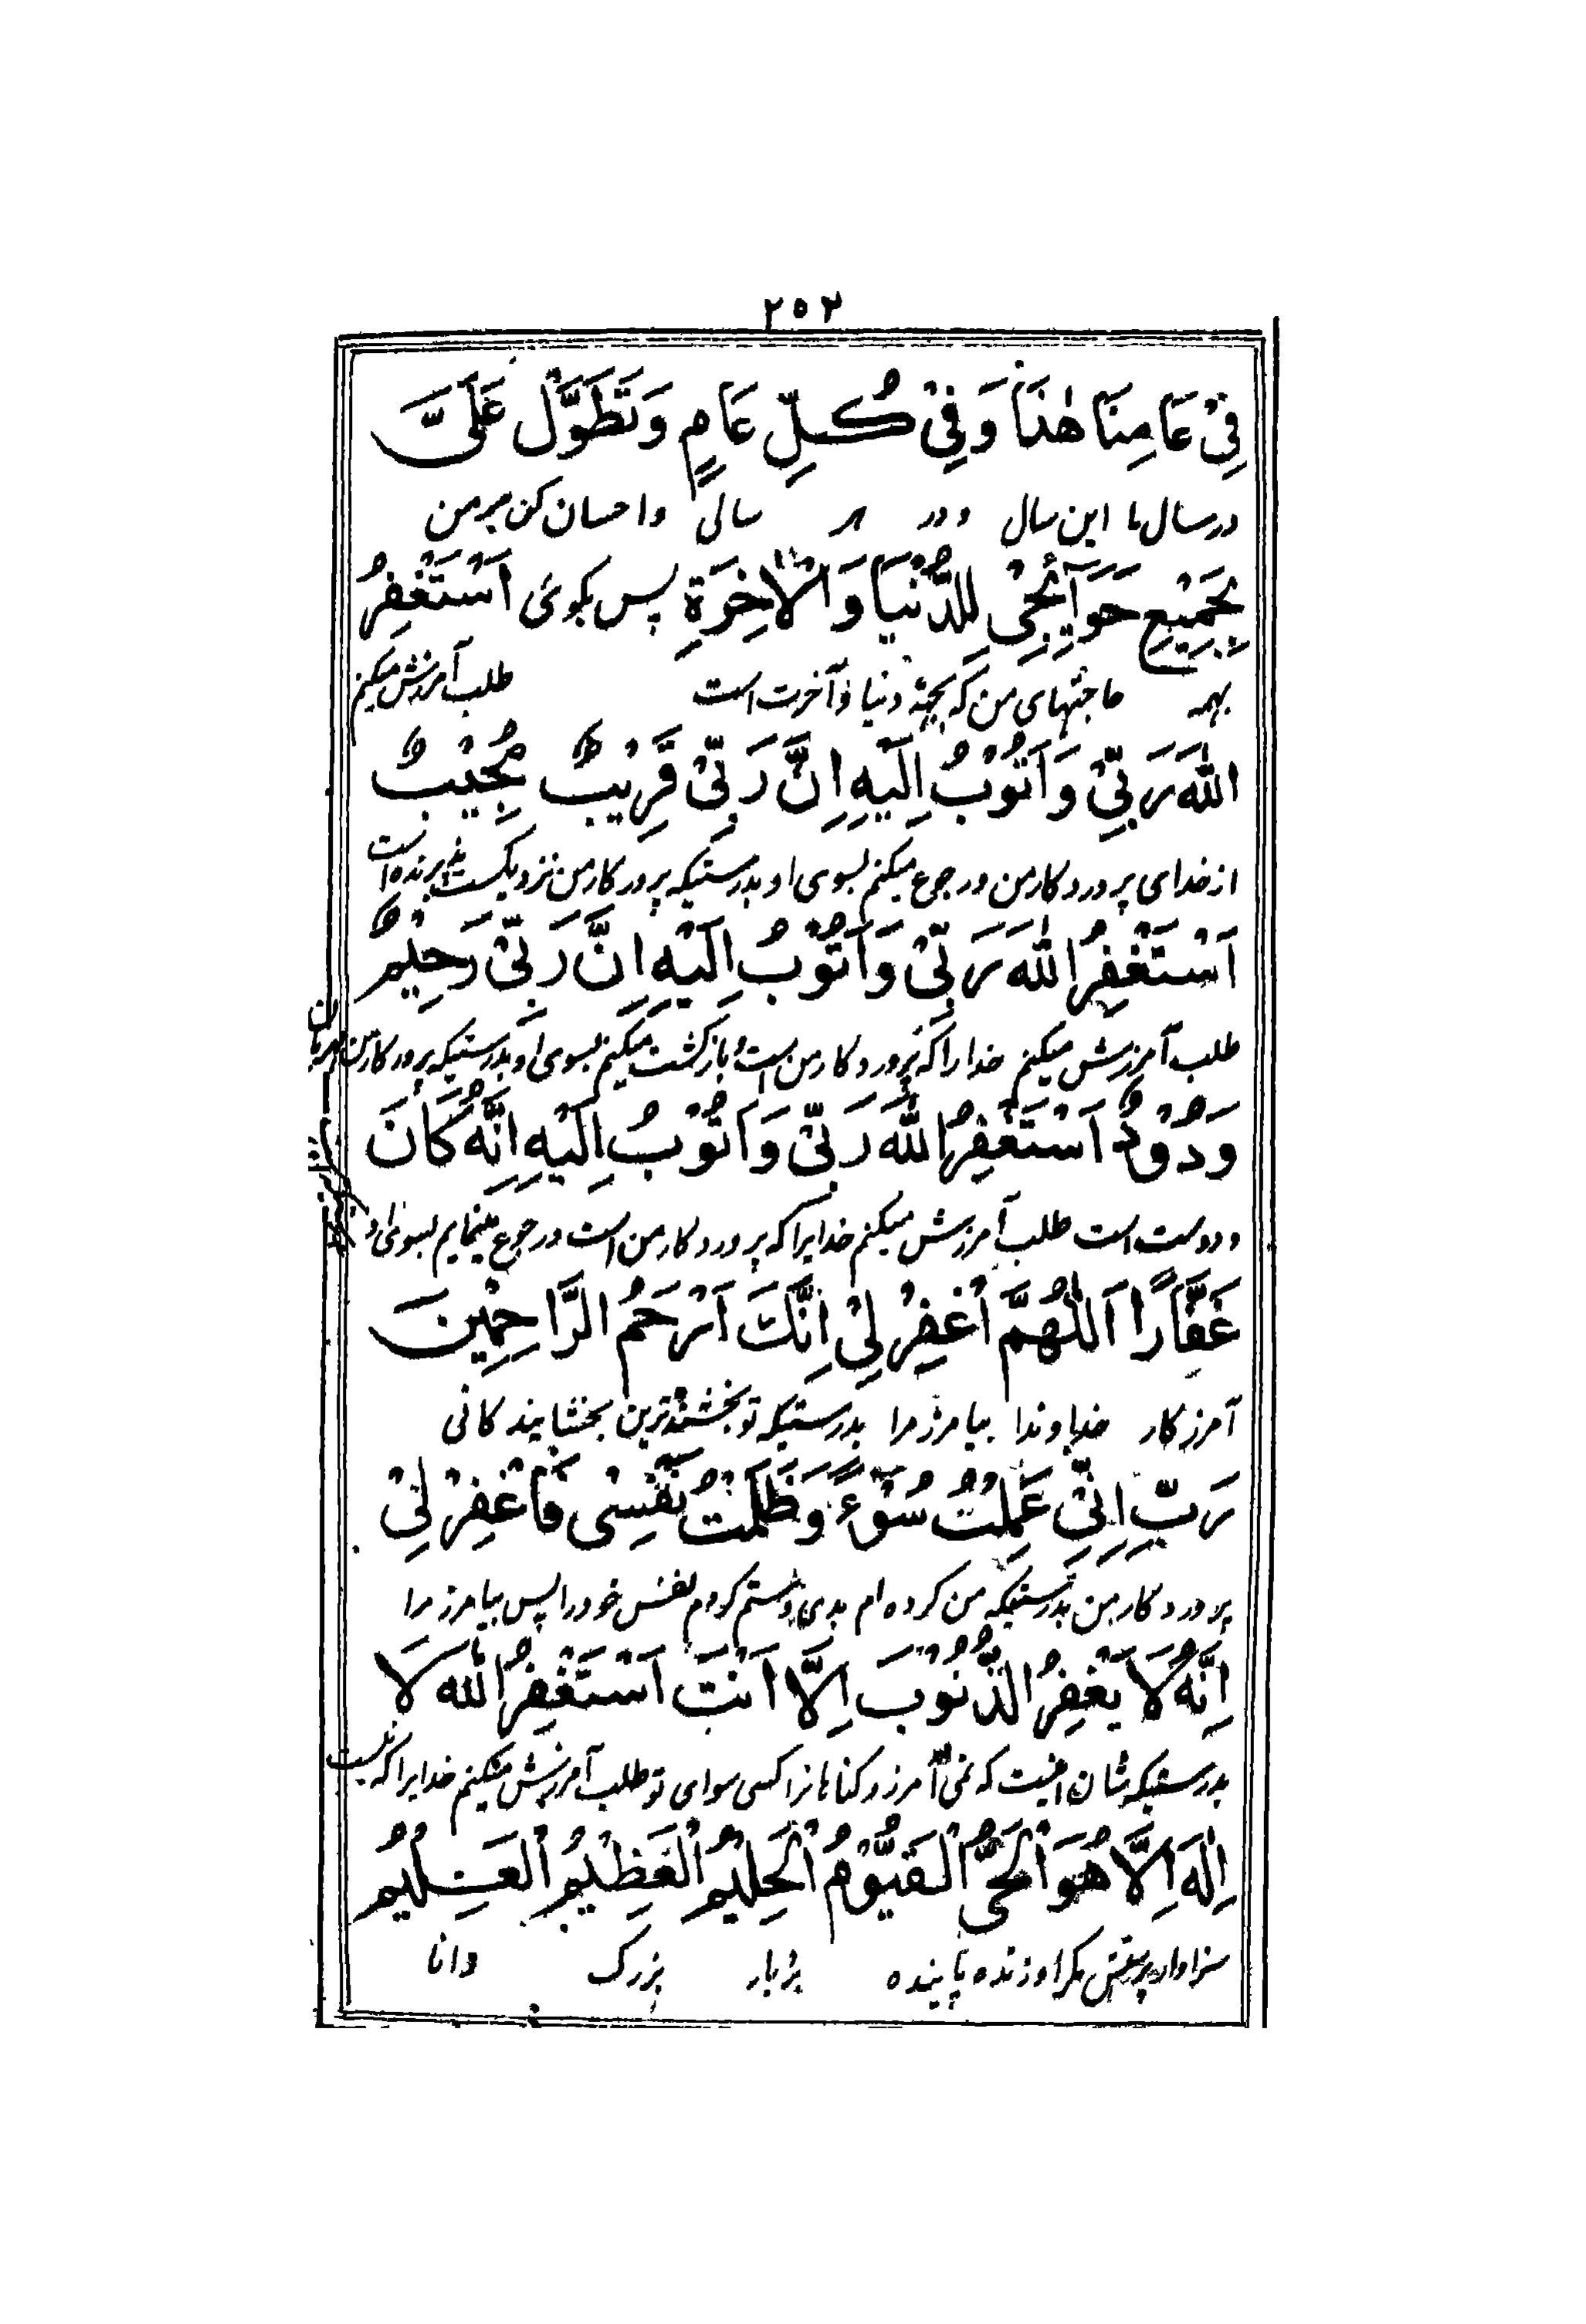 ۲۵۳
فِيْ عَامِنَا هٰذَا وَفِيْ كُلِّ عَامٍ وَتَطَوَّلْ عَلَىَّ
در سال ما این سال و در هر سالی و احسان کن بر من
بِجَمِيْعِ حَوَآئِجِىْ لِلدُّنْيَا وَالْاٰخِرَةِ پس بگوئی اَسْتَغْفِرُ
بهمه حاجتهای من که بجهة دنیا و آخرت است طلب آمرزش میکنم
اللّٰهَ رَبِّىْ وَاَتُوْبُ اِلَيْهِ اِنَّ رَبِّىْ قَرِيْبٌ مُجِيْبٌ
از خدای پروردگار من و رجوع میکنم بسوی او بدرستیکه پرورکار من نزدیکست پذیرنده است
اَسْتَغْفِرُ اللّٰهَ رَبِّىْ وَاَتُوْبُ اِلَيْهِ اِنَّ رَبِّىْ رَحِيْمٌ
طلب آمرزش میکنم خدا را که پروردکار من است و بازگشت میکنم بسوی او بدرستیکه پرورکار من مهربان
وَدُوْدٌ اَسْتَغْفِرُ اللّٰهَ رَبِّىْ وَاَتُوْبُ اِلَيْهِ اِنَّهُ كَانَ
و دوست است طلب آمرزش میکنم خدایرا که پروردکار من است و رجوع مینمایم بسوی او
غَفَّارًا اَللّٰهُمَّ اغْفِرْ لِىْ اِنَّكَ اَرْحَمُ الرَّاحِمِيْنَ
آمرزکار خداوندا بیامرز مرا بدرستیکه تو بخشنده‌ترین بخشایندکانی
رَبِّ اِنِّىْ عَمِلْتُ سُوْءً وَظَلَمْتُ نَفْسِىْ فَاغْفِرْ لِىْ
پروردکار من بدرستیکه من کرده ام بدی و ستم کردم نفس خود را پس بیامرز مرا
اِنَّهُ لَا يَغْفِرُ الذُّنُوْبَ اِلَّا اَنْتَ اَسْتَغْفِرُ اللّٰهَ لَا
بدرستیکه شان اینست که نمی آمرزد کناهانرا کسی سوای تو طلب آمرزش میکنم خدایرا که نیست
اِلٰهَ اِلَّا هُوَ الْحَىُّ الْقَيُّوْمُ الْحَلِيْمُ الْعَظِيْمُ الْعَلِيْمُ
سزاوار پرستش مکر او زنده پاینده بردبار بزرک دانا